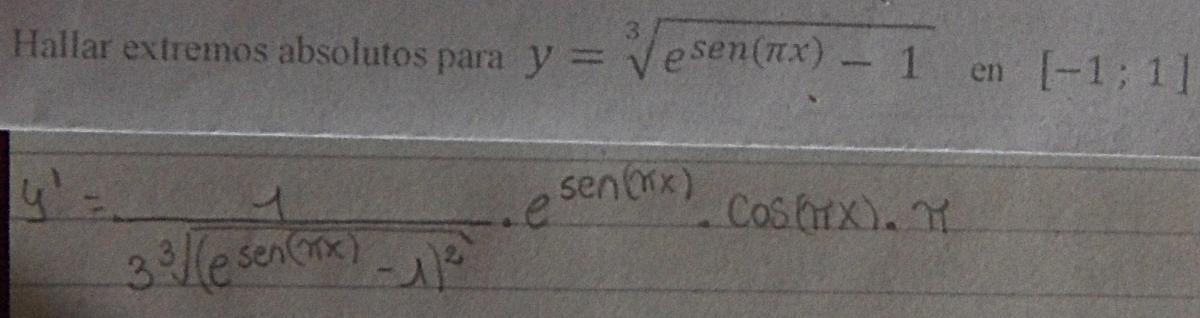 Hallar extremos absolutos para y = ∛(e^sen(πx) − 1) en [−1; 1]
y' = 1/(3∛((e^sen(πx) − 1)²)) . e^sen(πx) . cos(πx) . π